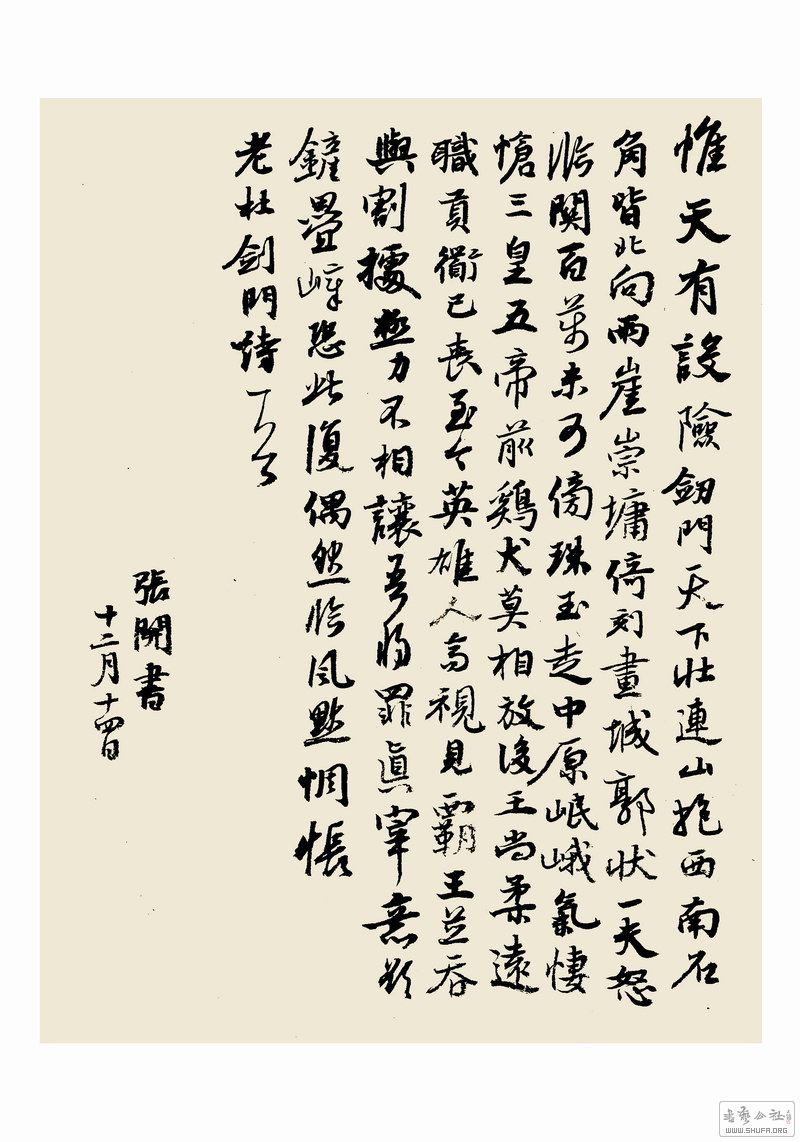 惟天有設險劒門天下壯連山抱西南石
角皆北向兩崖崇墉倚刻畫城郭狀一夫怒
臨關百萬未可傍珠玉走中原岷峨氣悽
愴三皇五帝前鷄犬莫相放後王尚柔遠
職貢衜已喪至今英雄人高視見霸王並吞
與割據極力不相讓吾將罪眞宰意欲
鏟疊嶂恐此復偶然臨風點惆悵
老杜劍門詩
張開書
十二月十四日
書藝公社
WWW.SHUFA.ORG